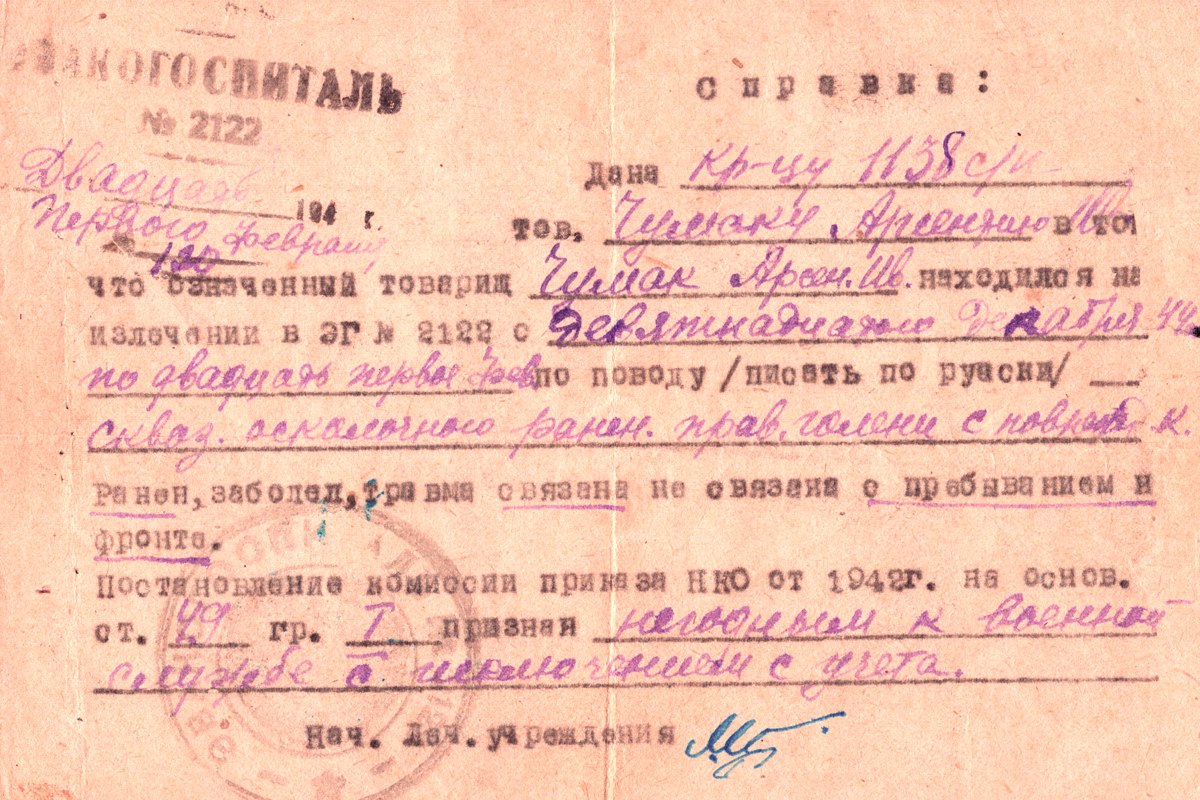 ЭВАКОГОСПИТАЛЬ
№ 2122
Справка:
Двадцать
Первого февраля
194 г.
Дана кр-цу 1138 с/п
тов. Чумаку Арсентию Ив. в том
что означенный товарищ Чумак Арсен. Ив. находился на
излечении в ЭГ № 2122 с Девятнадцатого Декабря 44
по двадцать первое фев по поводу /писать по руаски/
сквоз. осколочного ранен. прав. голени с поврежд к.
Ранен, заболел, травма связана не связана с пребыванием н
фронте.
Постановление комиссии приказа НКО от 1942г. на основ.
ст. 49 гр. I признан негодным к военной
службе с исключением с учета.
Нач. Леч. учреждения